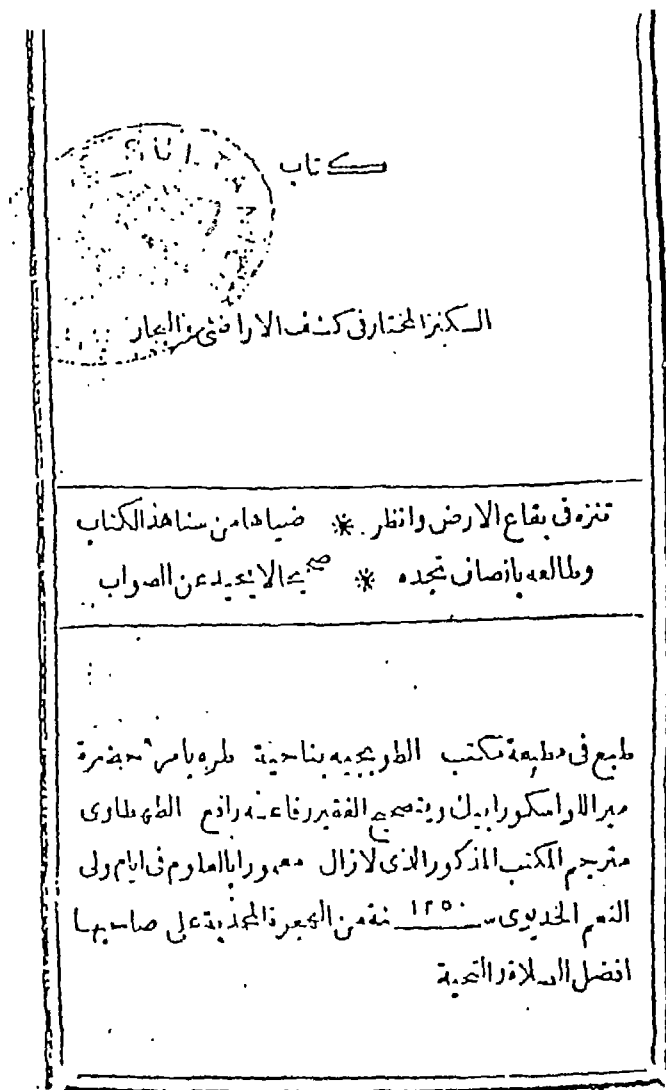 كتاب
الكنز المختار فى كشف الاراضى والبحار
تنزه فى بقاع الارض وانظر * ضياها من سنا هذ الكتاب
وطالعه بانصاف تجده * صحيحا لا يحيد عن الصواب
طبع فى مطبعة مكتب الطوبجيه بناحية طره بامر حضرة
مير اللوا سكورا بيك وبتصحيح الفقير رفاعه رافع الطهطاوى
مترجم المكتب المذكور الذى لازال معمورا بالعلوم فى ايام ولى
النعم الخديوى سنة ١٢٥٠ من الهجرة المحمدية على صاحبها
افضل الصلاة والتحية